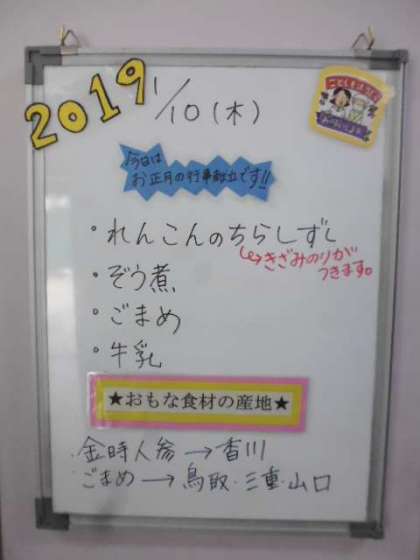 2019 1/10(木)
今日は
お正月の行事献立です!!
・れんこんのちらしずし
↳きざみのりが
つきます。
・ぞう煮
・ごまめ
・牛乳
★おもな食材の産地★
・金時人参→香川
・ごまめ→鳥取・三重・山口